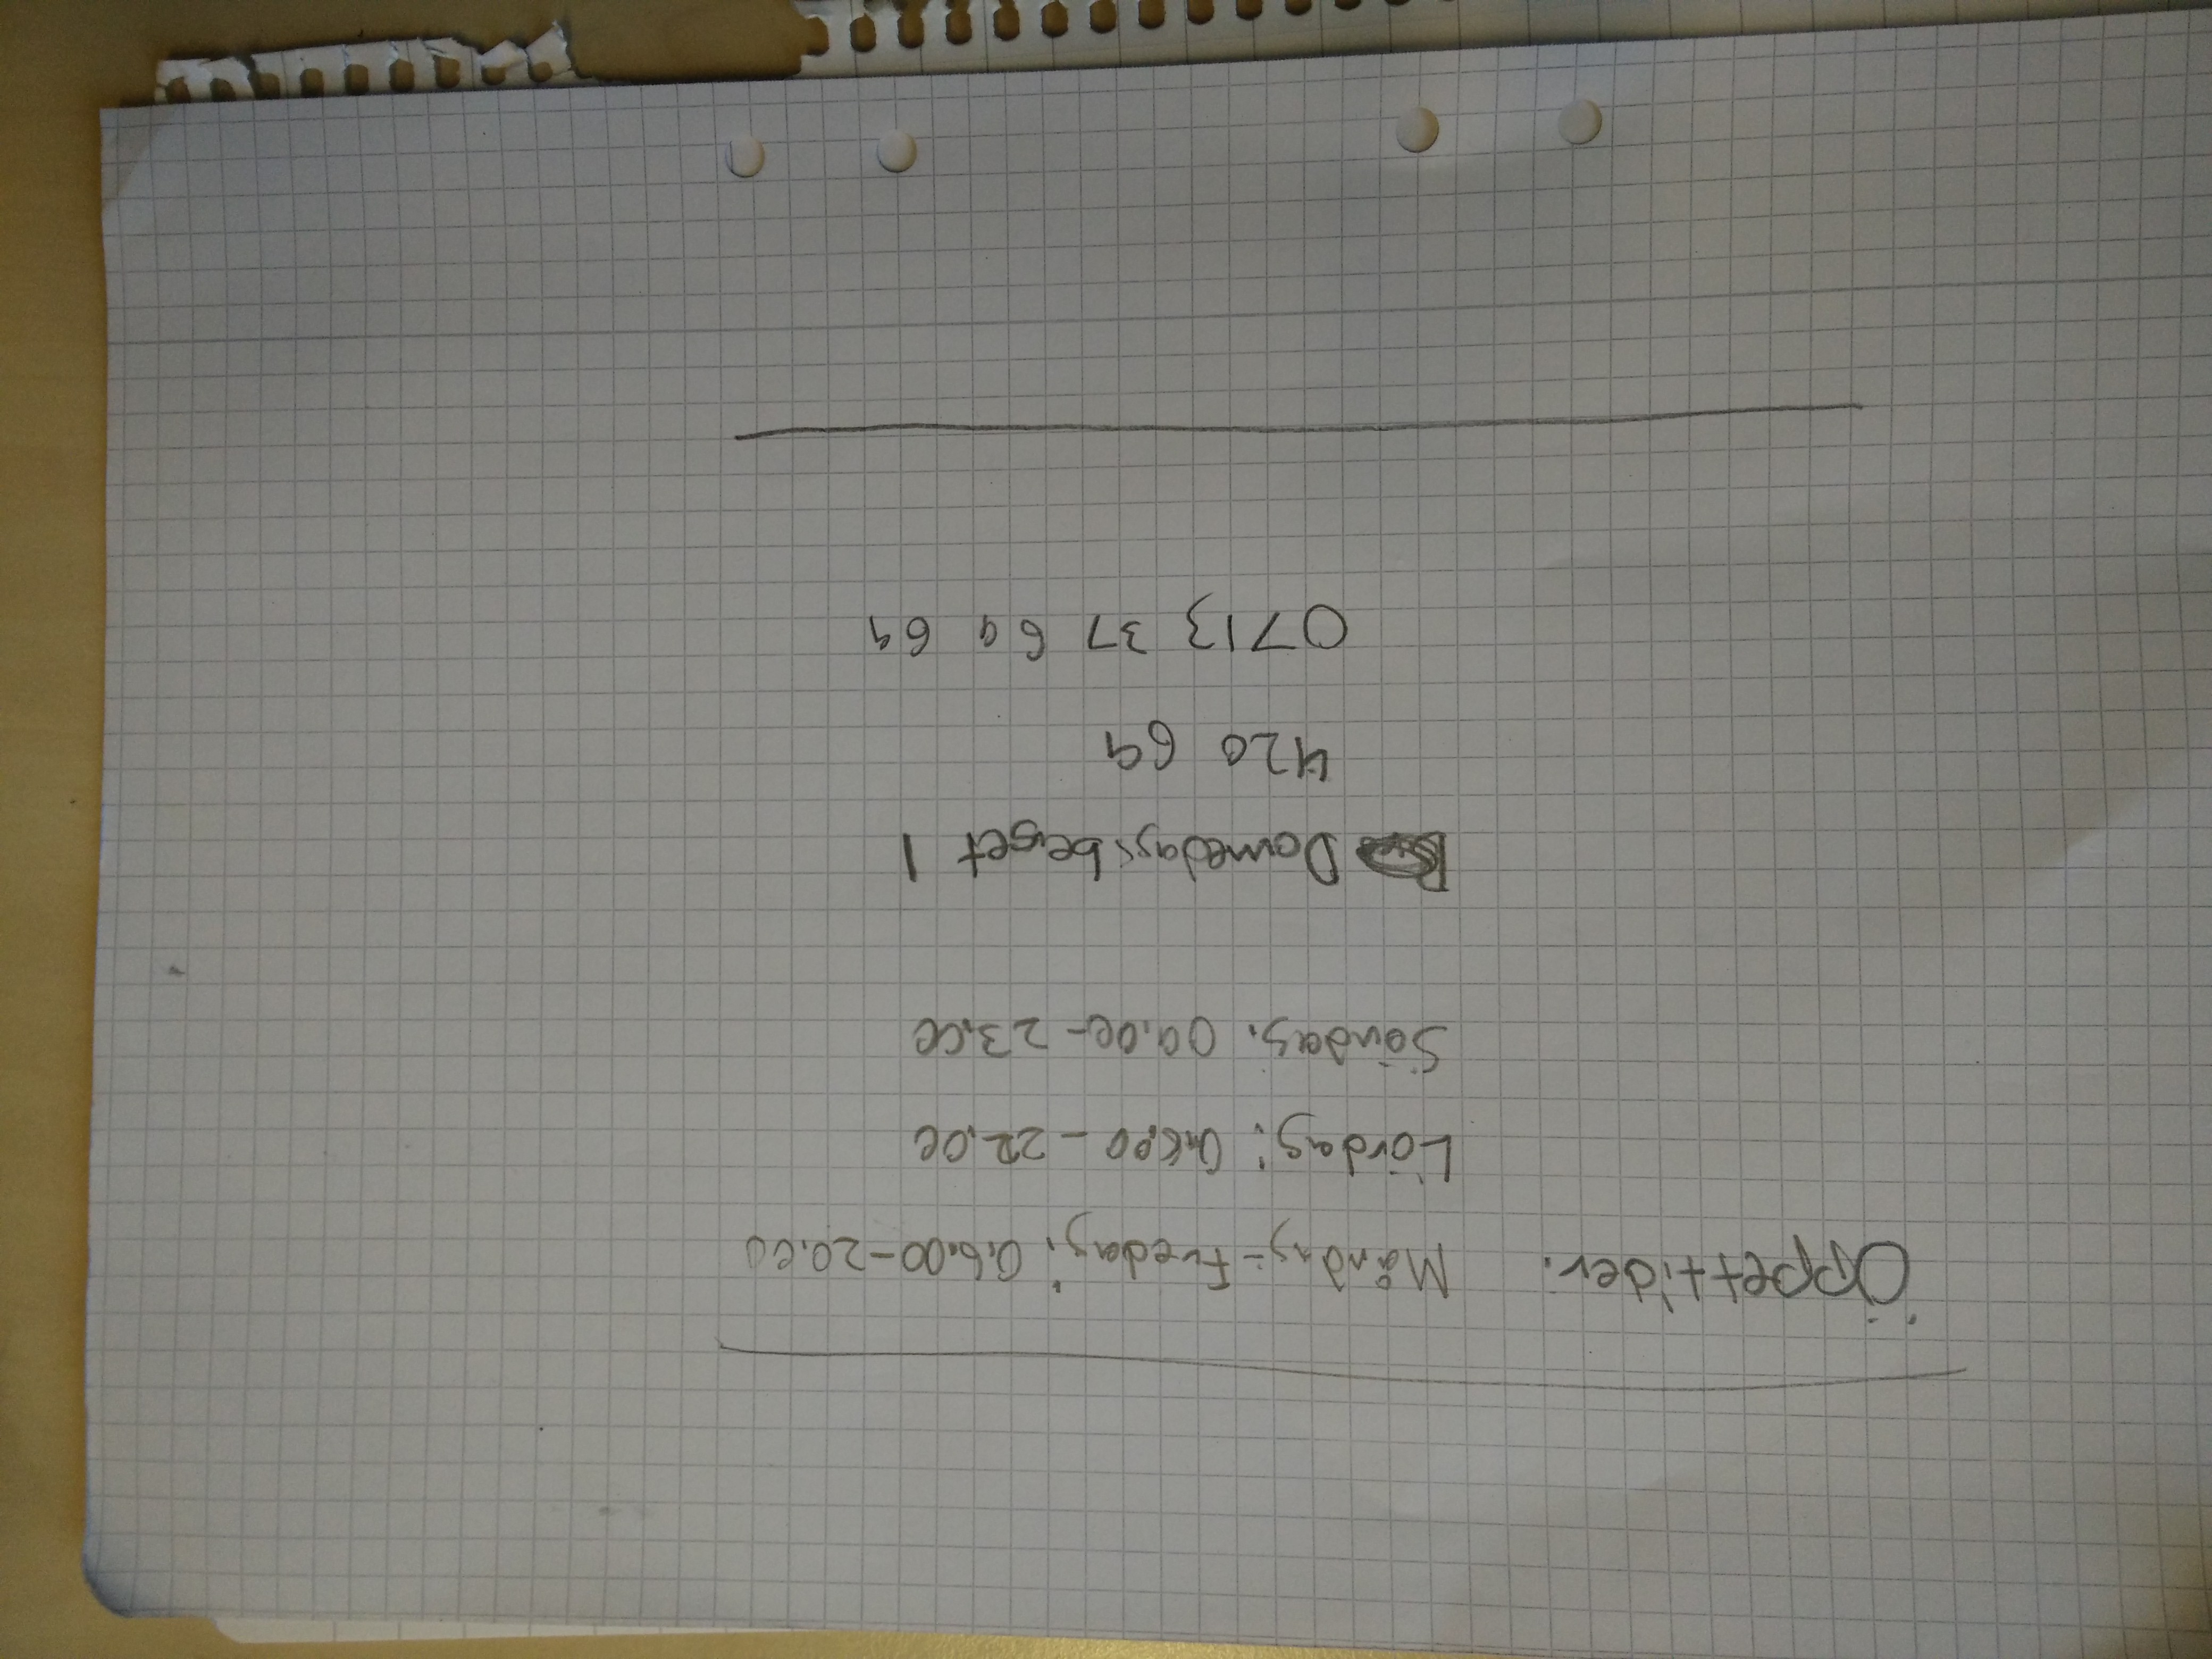 Öppettider: Måndag-Fredag: 06.00-20.00
Lördag: 06.00-22.00
Söndag: 09.00-23.00
Domedagsberget 1
420 69
0713 37 69 69